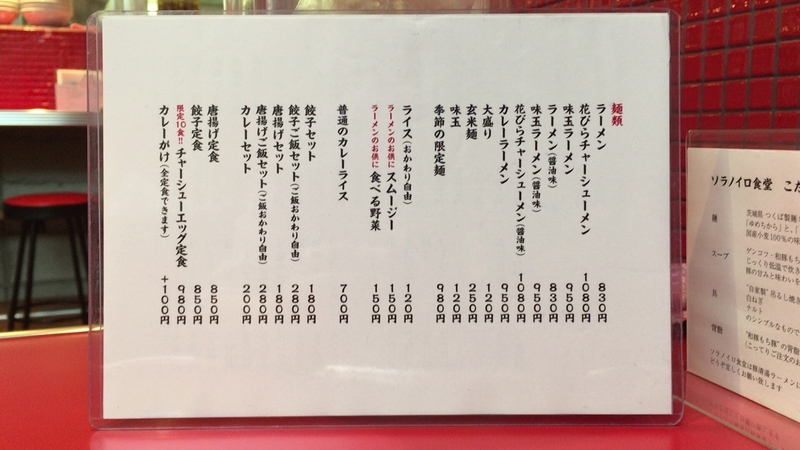 麺類
ラーメン 830円
花びらチャーシューメン 1080円
味玉ラーメン 950円
ラーメン(醤油味) 830円
味玉ラーメン(醤油味) 950円
花びらチャーシューメン(醤油味) 1080円
カレーラーメン 950円
大盛り 120円
玄米麺 250円
味玉 120円
季節の限定麺 980円
ライス(おかわり自由) 120円
ラーメンのお供に スムージー 150円
ラーメンのお供に 食べる野菜 150円
普通のカレーライス 700円
餃子セット 180円
餃子ご飯セット(ご飯おかわり自由) 280円
唐揚げセット 180円
唐揚げご飯セット(ご飯おかわり自由) 280円
カレーセット 200円
唐揚げ定食 850円
餃子定食 850円
限定10食!! チャーシューエッグ定食 980円
カレーがけ(全定食できます) +100円
ソラノイロ食堂 こだ
麺
茨城県 つくば製麺
「ゆめちから」と、「
国産小麦100%の味
スープ
ゲンコツ・和豚もち
じっくり低温で炊き
豚の甘みと味わいを
具
"自家製" 吊るし焼き
白ねぎ
ナルト
のシンプルなもので
背脂
"和豚もち豚" の背脂
(こってりご注文のお
ソラノイロ食堂は豚清湯ラーメンに
どうぞ宜しくお願い致します